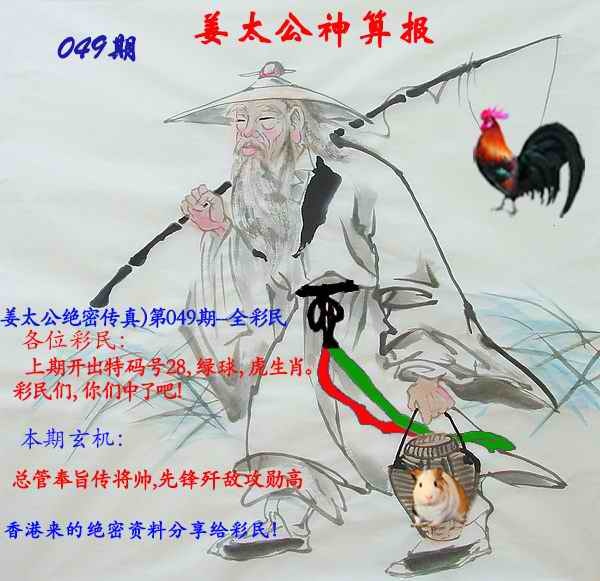 姜太公神算报
049期
姜太公绝密传真)第049期--全彩民
各位彩民:
上期开出特码号28,绿球,虎生肖。
彩民们,你们中了吧!
本期玄机:
总管奉旨传将帅,先锋歼敌攻勋高
香港来的绝密资料分享给彩民!